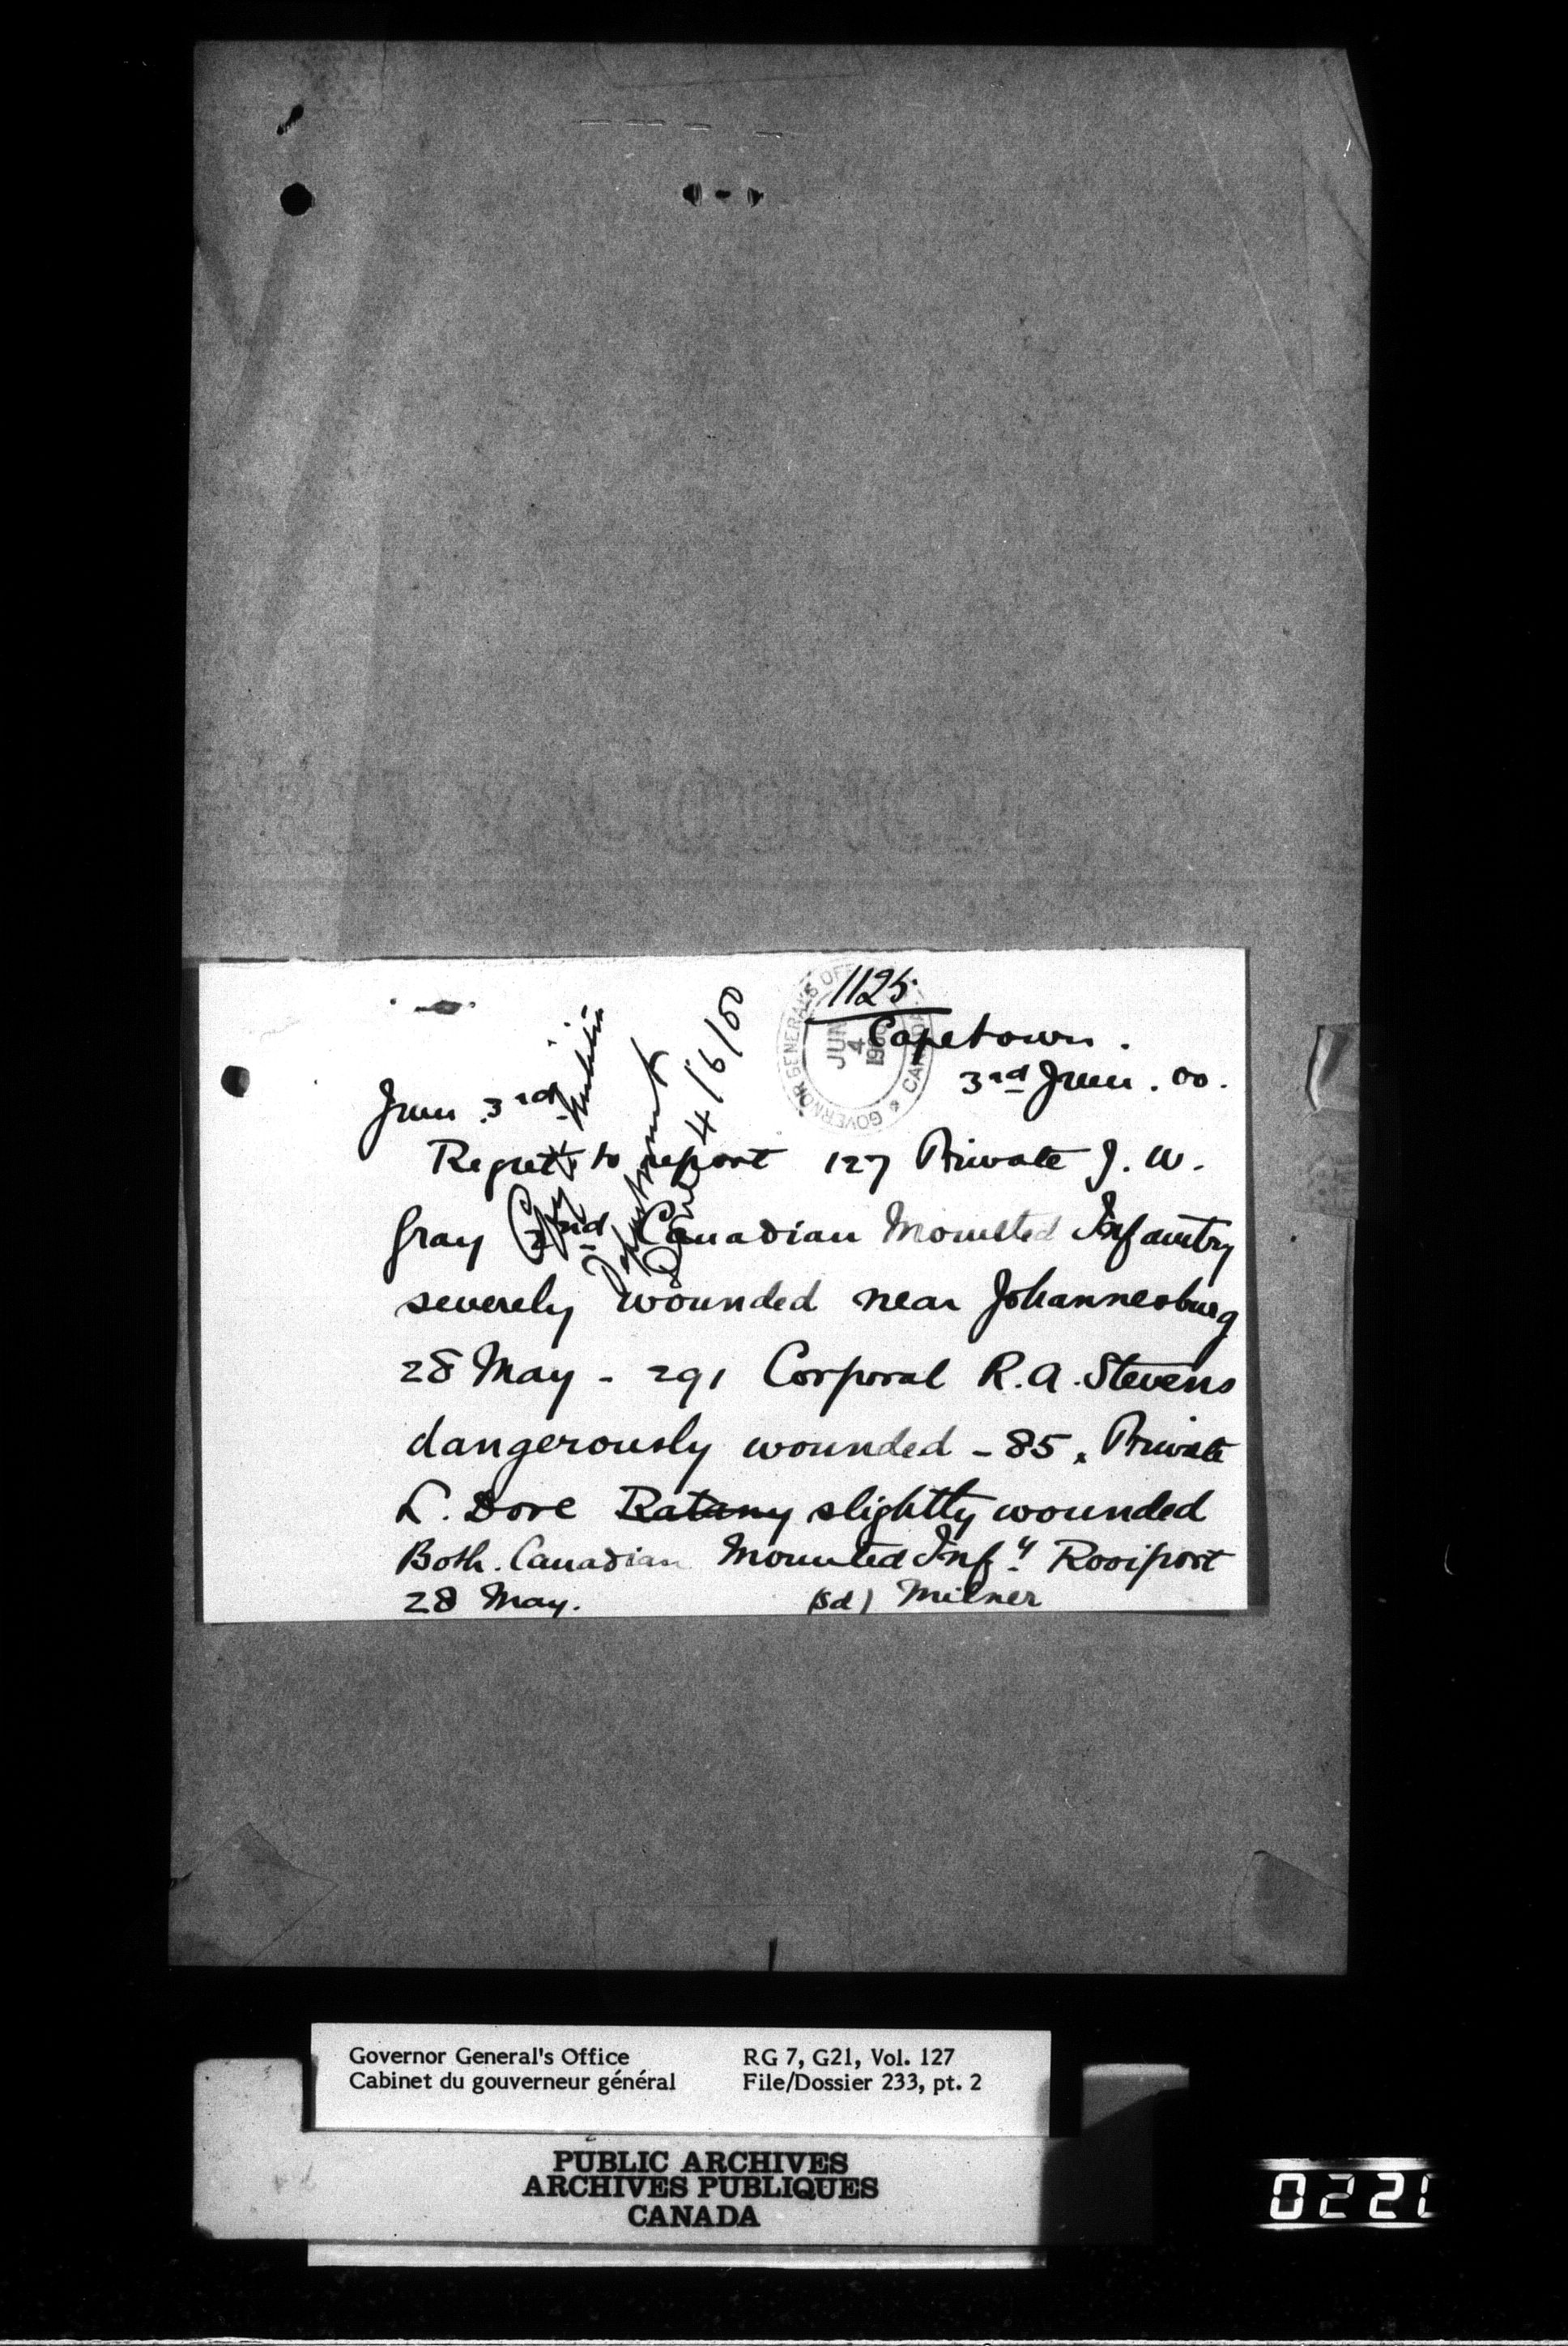 1125
Capetown.
3rd June. 00.
June 3rd
Regret to report 127 Private J. W.
Gray 2nd Canadian Mounted Infantry
severely wounded near Johannesburg
28 May - 291 Corporal R. A. Stevens
dangerously wounded - 85. Private
L. Dore Ratany slightly wounded
Both. Canadian Mounted Infy Rooiport
28 May. (sd) Milner
Copy Militia
Department
4/6/00
GOVERNOR GENERAL'S OFFICE CANADA
JUN
4
1900
Governor General's Office RG 7, G21, Vol. 127
Cabinet du gouverneur général File/Dossier 233, pt. 2
PUBLIC ARCHIVES
ARCHIVES PUBLIQUES
CANADA
0221